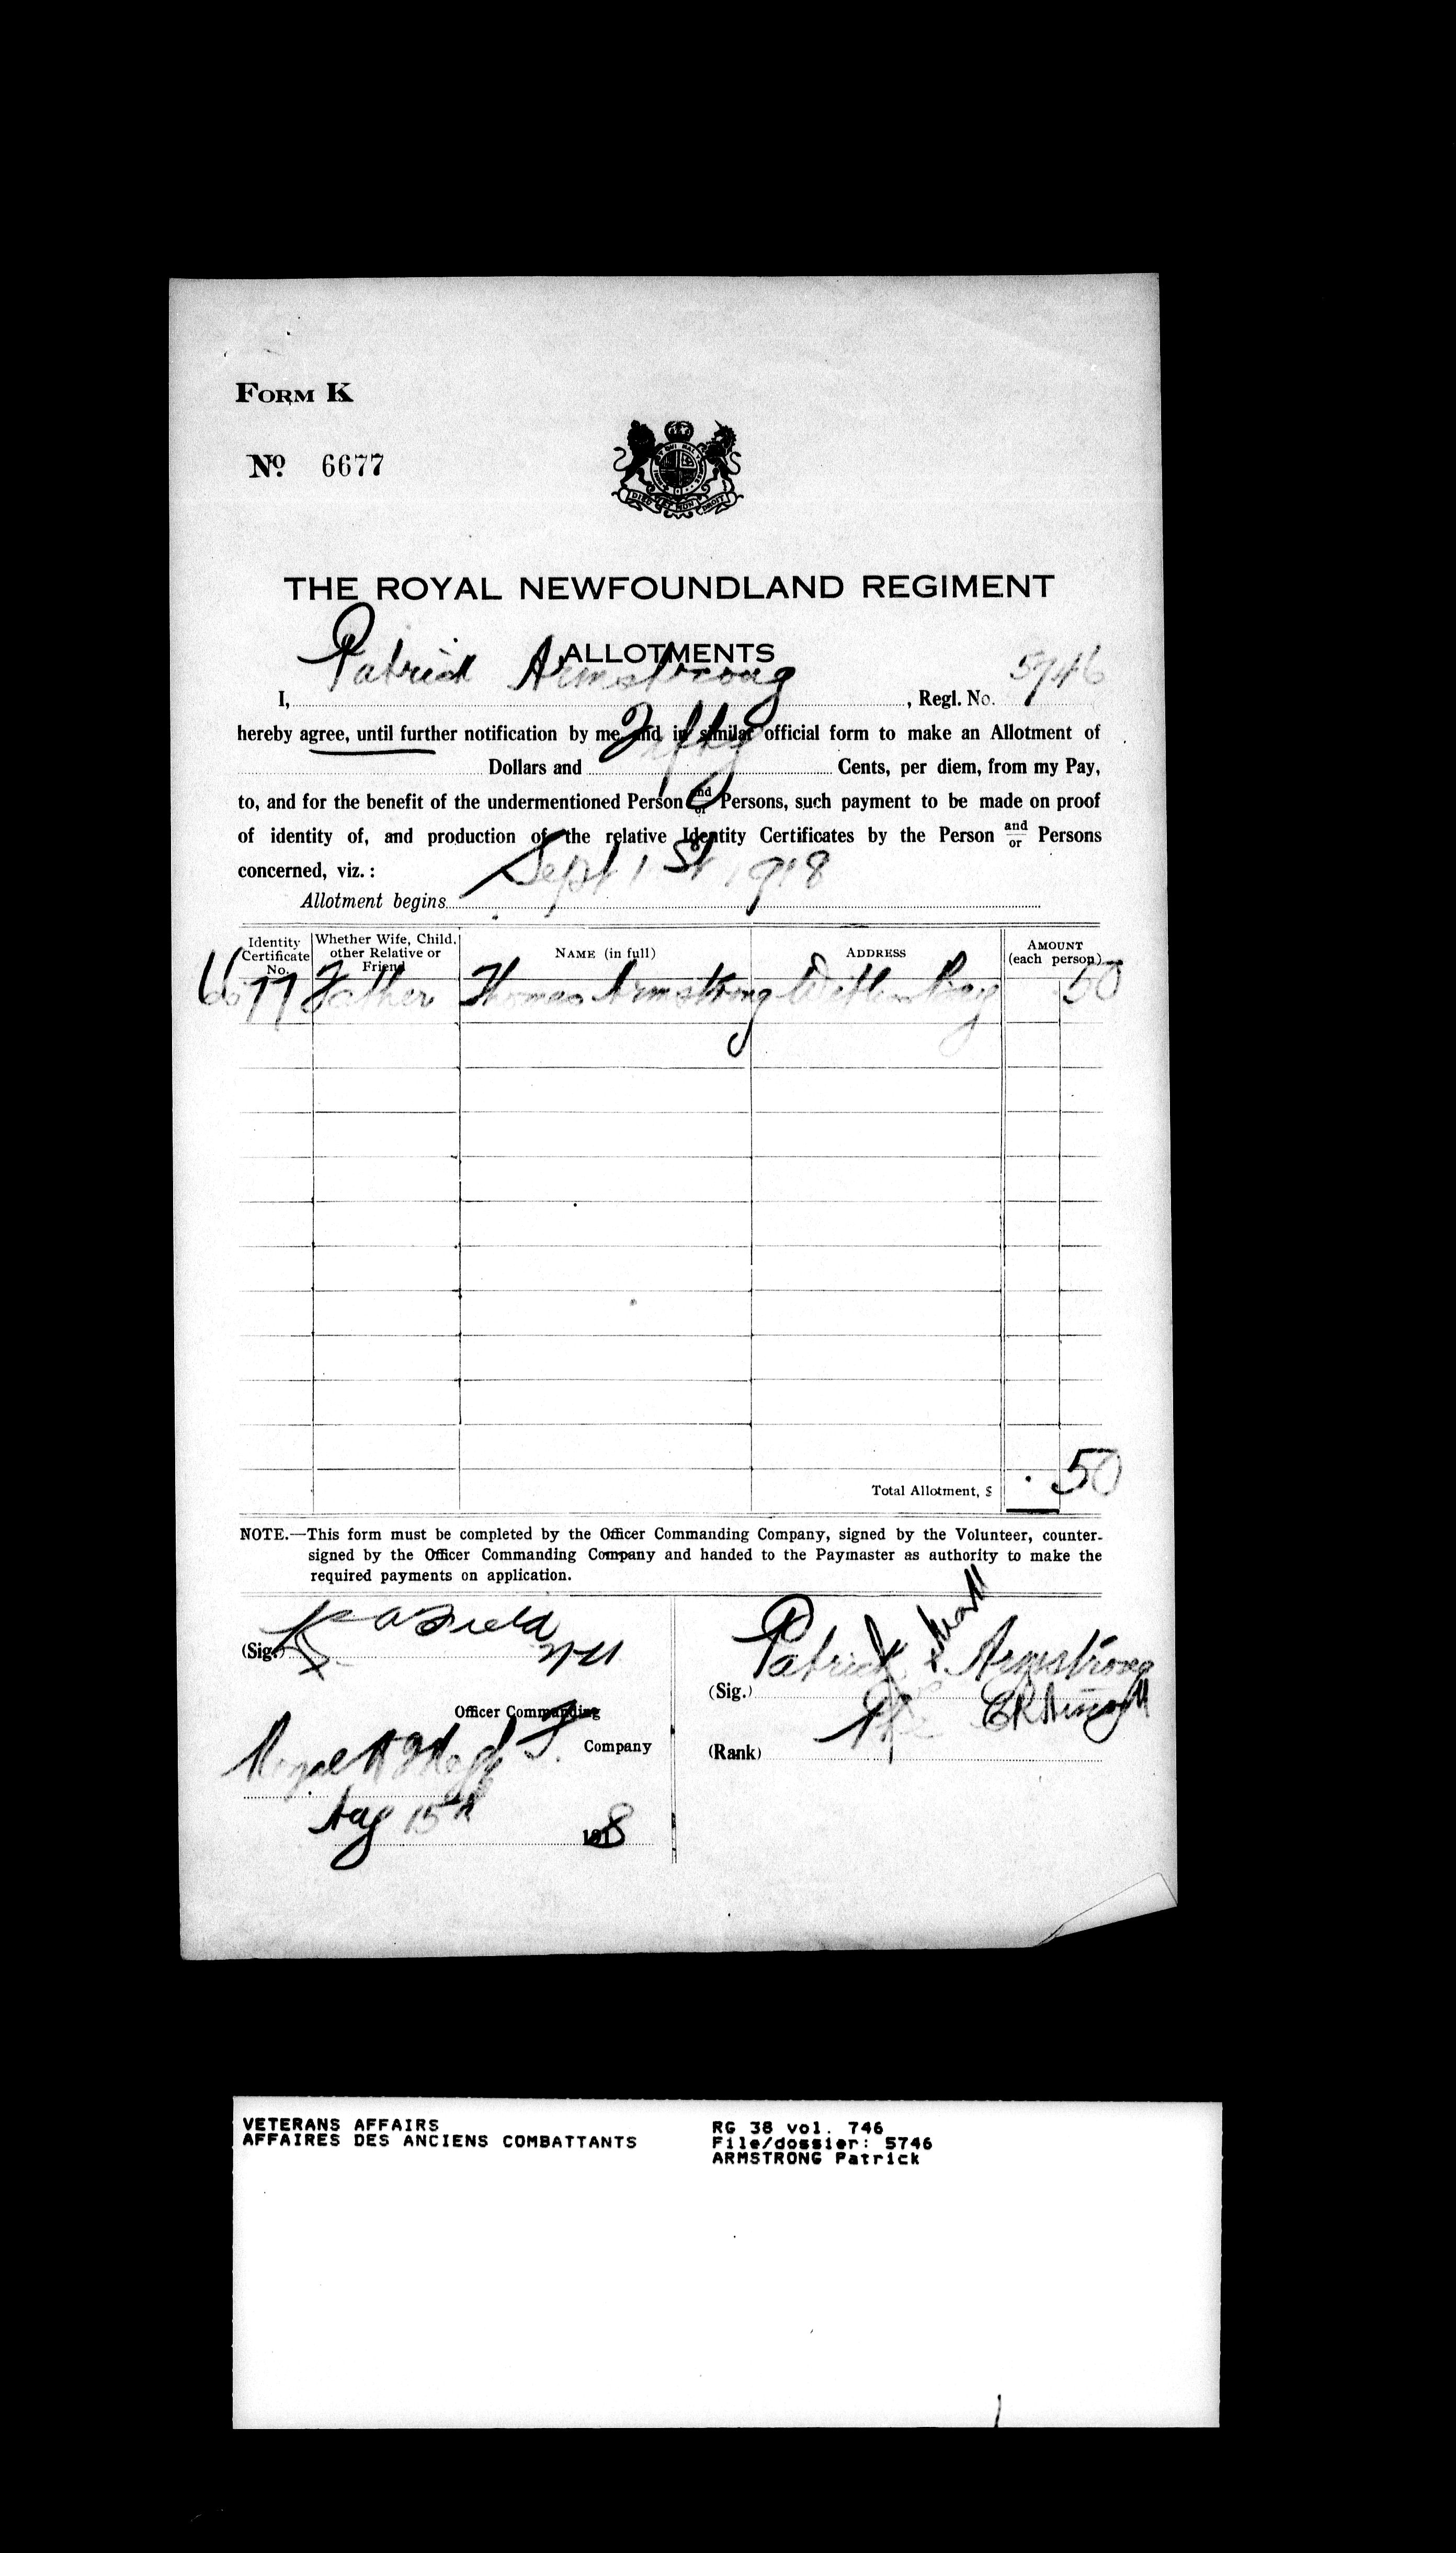 FORM K
No. 6677
DIEU ET MON DROIT
THE ROYAL NEWFOUNDLAND REGIMENT
ALLOTMENTS
I, Patrick Armstrong, Regl. No. 5746
hereby agree, until further notification by me, and in similar official form to make an Allotment of
Dollars and Fifty Cents, per diem, from my Pay,
to, and for the benefit of the undermentioned Person and or Persons, such payment to be made on proof
of identity of, and production of the relative Identity Certificates by the Person and or Persons
concerned, viz.:
Allotment begins Sept 1st 1918
Identity Certificate No. Whether Wife, Child, other Relative or Friend NAME (in full) ADDRESS AMOUNT (each person)
6677 Father Thomas Armstrong Bay 50
Total Allotment, $ . 50
NOTE.—This form must be completed by the Officer Commanding Company, signed by the Volunteer, counter-
signed by the Officer Commanding Company and handed to the Paymaster as authority to make the
required payments on application.
(Sig.) Field
Officer Commanding
Company
Aug 15th 1918
(Sig.) Patrick x mark Armstrong
(Rank) Pte
VETERANS AFFAIRS
AFFAIRES DES ANCIENS COMBATTANTS
RG 38 vol. 746
File/dossier: 5746
ARMSTRONG Patrick